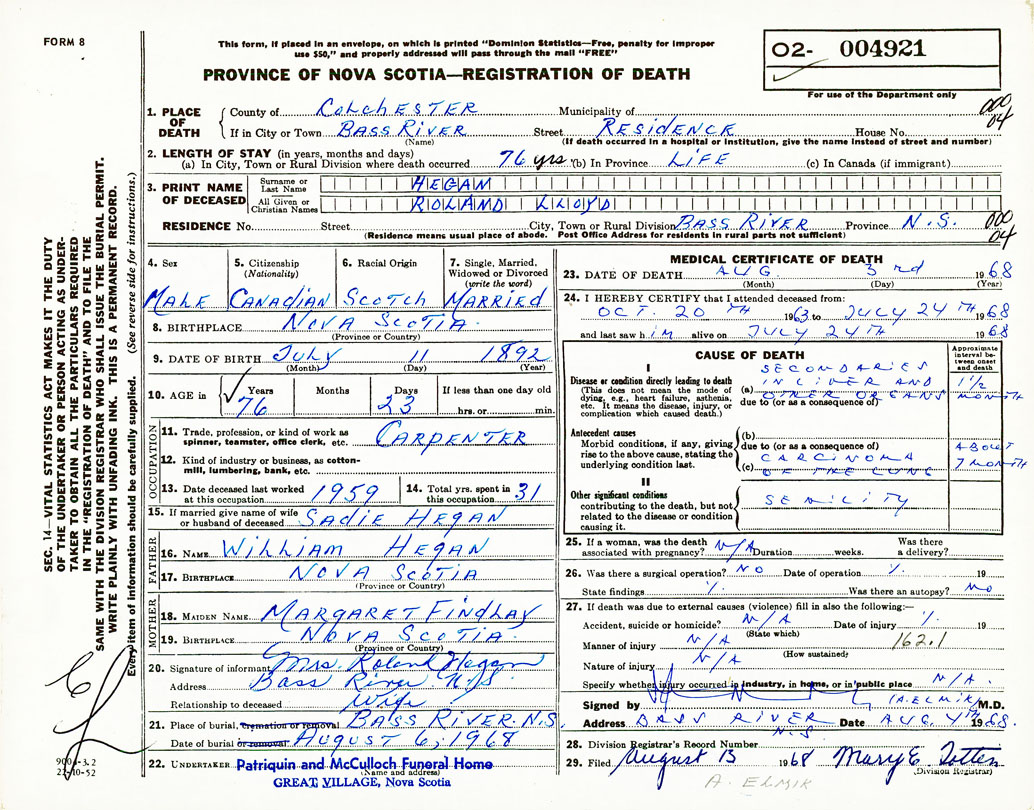 FORM 8
This form, if placed in an envelope, on which is printed "Dominion Statistics—Free, penalty for improper
use $50," and properly addressed will pass through the mail "FREE"
PROVINCE OF NOVA SCOTIA—REGISTRATION OF DEATH
02- 004921
For use of the Department only
1. PLACE OF DEATH
County of Colchester Municipality of
000
04
If in City or Town Bass River Street Residence House No.
(Name) (If death occurred in a hospital or institution, give the name instead of street and number)
2. LENGTH OF STAY (in years, months and days)
(a) In City, Town or Rural Division where death occurred 76 yrs (b) In Province Life (c) In Canada (if immigrant)
3. PRINT NAME OF DECEASED
Surname or Last Name HEGAM
All Given or Christian Names ROLAND LLOYD
RESIDENCE No. Street City, Town or Rural Division Bass River Province N.S.
000
04
(Residence means usual place of abode. Post Office Address for residents in rural parts not sufficient)
4. Sex Male
5. Citizenship (Nationality) Canadian
6. Racial Origin Scotch
7. Single, Married, Widowed or Divorced (write the word) Married
8. BIRTHPLACE Nova Scotia
(Province or Country)
9. DATE OF BIRTH July 11 1892
(Month) (Day) (Year)
10. AGE in Years 76 Months Days 23 If less than one day old hrs. or min.
OCCUPATION
11. Trade, profession, or kind of work as spinner, teamster, office clerk, etc. Carpenter
12. Kind of industry or business, as cotton-mill, lumbering, bank, etc.
13. Date deceased last worked at this occupation 1959
14. Total yrs. spent in this occupation 31
15. If married give name of wife or husband of deceased Sadie Hegan
FATHER
16. NAME William Hegan
17. BIRTHPLACE Nova Scotia
(Province or Country)
MOTHER
18. MAIDEN NAME Margaret Findlay
19. BIRTHPLACE Nova Scotia
(Province or Country)
20. Signature of informant Mrs. Roland Hegan
Address Bass River N.S.
Relationship to deceased Wife
21. Place of burial, cremation or removal Bass River. N.S.
Date of burial or removal August 6, 1968
22. UNDERTAKER Patriquin and McCulloch Funeral Home
(Name and address)
GREAT VILLAGE, Nova Scotia
MEDICAL CERTIFICATE OF DEATH
23. DATE OF DEATH AUG 3rd 1968
(Month) (Day) (Year)
24. I HEREBY CERTIFY that I attended deceased from:
OCT. 20TH 1963 to JULY 24TH 1968
and last saw him alive on JULY 24TH 1968
CAUSE OF DEATH
Approximate interval between onset and death
I
Disease or condition directly leading to death
(This does not mean the mode of dying, e.g., heart failure, asthenia, etc. It means the disease, injury, or complication which caused death.)
(a) SECONDARIES IN LIVER AND OTHER ORGANS
due to (or as a consequence of)
1½ MONTH
Antecedent causes
Morbid conditions, if any, giving rise to the above cause, stating the underlying condition last.
(b)
due to (or as a consequence of)
(c) CARCINOMA OF THE LUNG
ABOUT 7 MONTH
II
Other significant conditions
contributing to the death, but not related to the disease or condition causing it.
SENILITY
25. If a woman, was the death associated with pregnancy? N/A Duration weeks. Was there a delivery?
26. Was there a surgical operation? NO Date of operation 19
State findings Was there an autopsy? NO
27. If death was due to external causes (violence) fill in also the following:—
Accident, suicide or homicide? N/A Date of injury 19
(State which)
Manner of injury N/A 162.1
(How sustained)
Nature of injury N/A
Specify whether injury occurred in industry, in home, or in public place N/A
Signed by (A. ELMIK) M.D.
Address BASS RIVER N.S. Date AUG. 4TH 1968.
28. Division Registrar's Record Number
29. Filed August 13 1968 Mary E. Totten
(Division Registrar)
A. ELMIK
SEC. 14—VITAL STATISTICS ACT MAKES IT THE DUTY
OF THE UNDERTAKER OR PERSON ACTING AS UNDER-
TAKER TO OBTAIN ALL THE PARTICULARS REQUIRED
IN THE "REGISTRATION OF DEATH" AND TO FILE THE
SAME WITH THE DIVISION REGISTRAR WHO SHALL ISSUE THE BURIAL PERMIT.
WRITE PLAINLY WITH UNFADING INK. THIS IS A PERMANENT RECORD.
Every item of information should be carefully supplied. (See reverse side for instructions.)